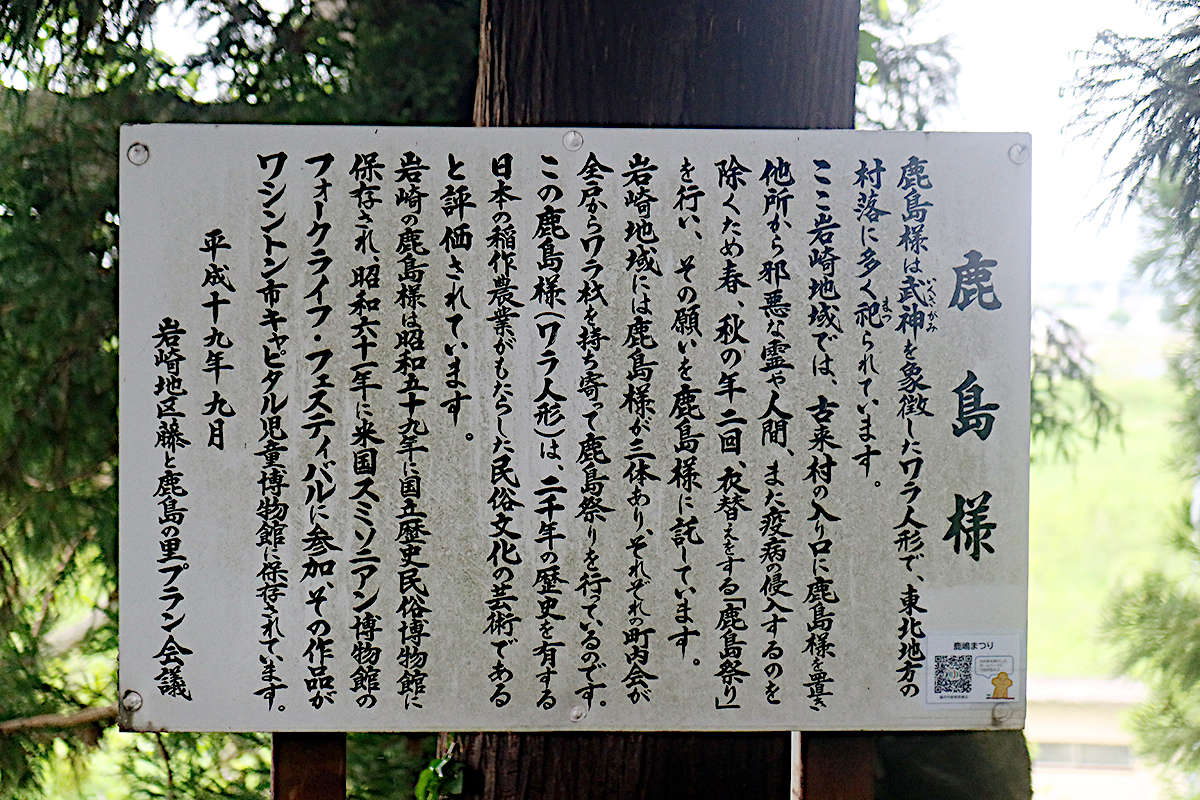 鹿島様
鹿島様は武神を象徴したワラ人形で、東北地方の
いくさがみ
村落に多く祀られています。
まつ
ここ岩崎地域では、古来村の入り口に鹿島様を置き
他所から邪悪な霊や人間、また疫病の侵入するのを
除くため春、秋の年二回、衣替えをする「鹿島祭り」
を行い、その願いを鹿島様に託しています。
岩崎地域には鹿島様が三体あり、それぞれの町内会が
全戸からワラ材を持ち寄って鹿島祭りを行っているのです。
この鹿島様(ワラ人形)は、二千年の歴史を有する
日本の稲作農業がもたらした民俗文化の芸術である
と評価されています。
岩崎の鹿島様は昭和五十九年に国立歴史民俗博物館に
保存され、昭和六十一年に米国スミソニアン博物館の
フォークライフ・フェスティバルに参加、その作品が
ワシントン市キャピタル児童博物館に保存されています。
平成十九年九月
岩崎地区藤と鹿島の里プラン会議
鹿嶋まつり